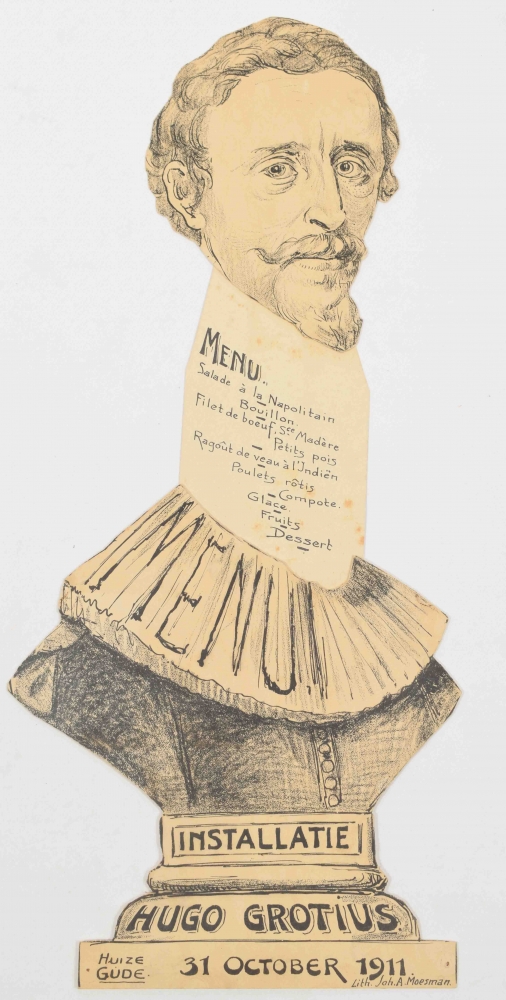 MENU.
Salade à la Napolitain
Bouillon
Filet de boeuf, Sce Madère
Petits pois
Ragoût de veau à l'Indiën
Poulets rôtis
Compote.
Glace
Fruits
Dessert
MENU
INSTALLATIE
HUGO GROTIUS.
HUIZE
GUDE.
31 OCTOBER 1911.
Lith. Joh. A. Moesman.